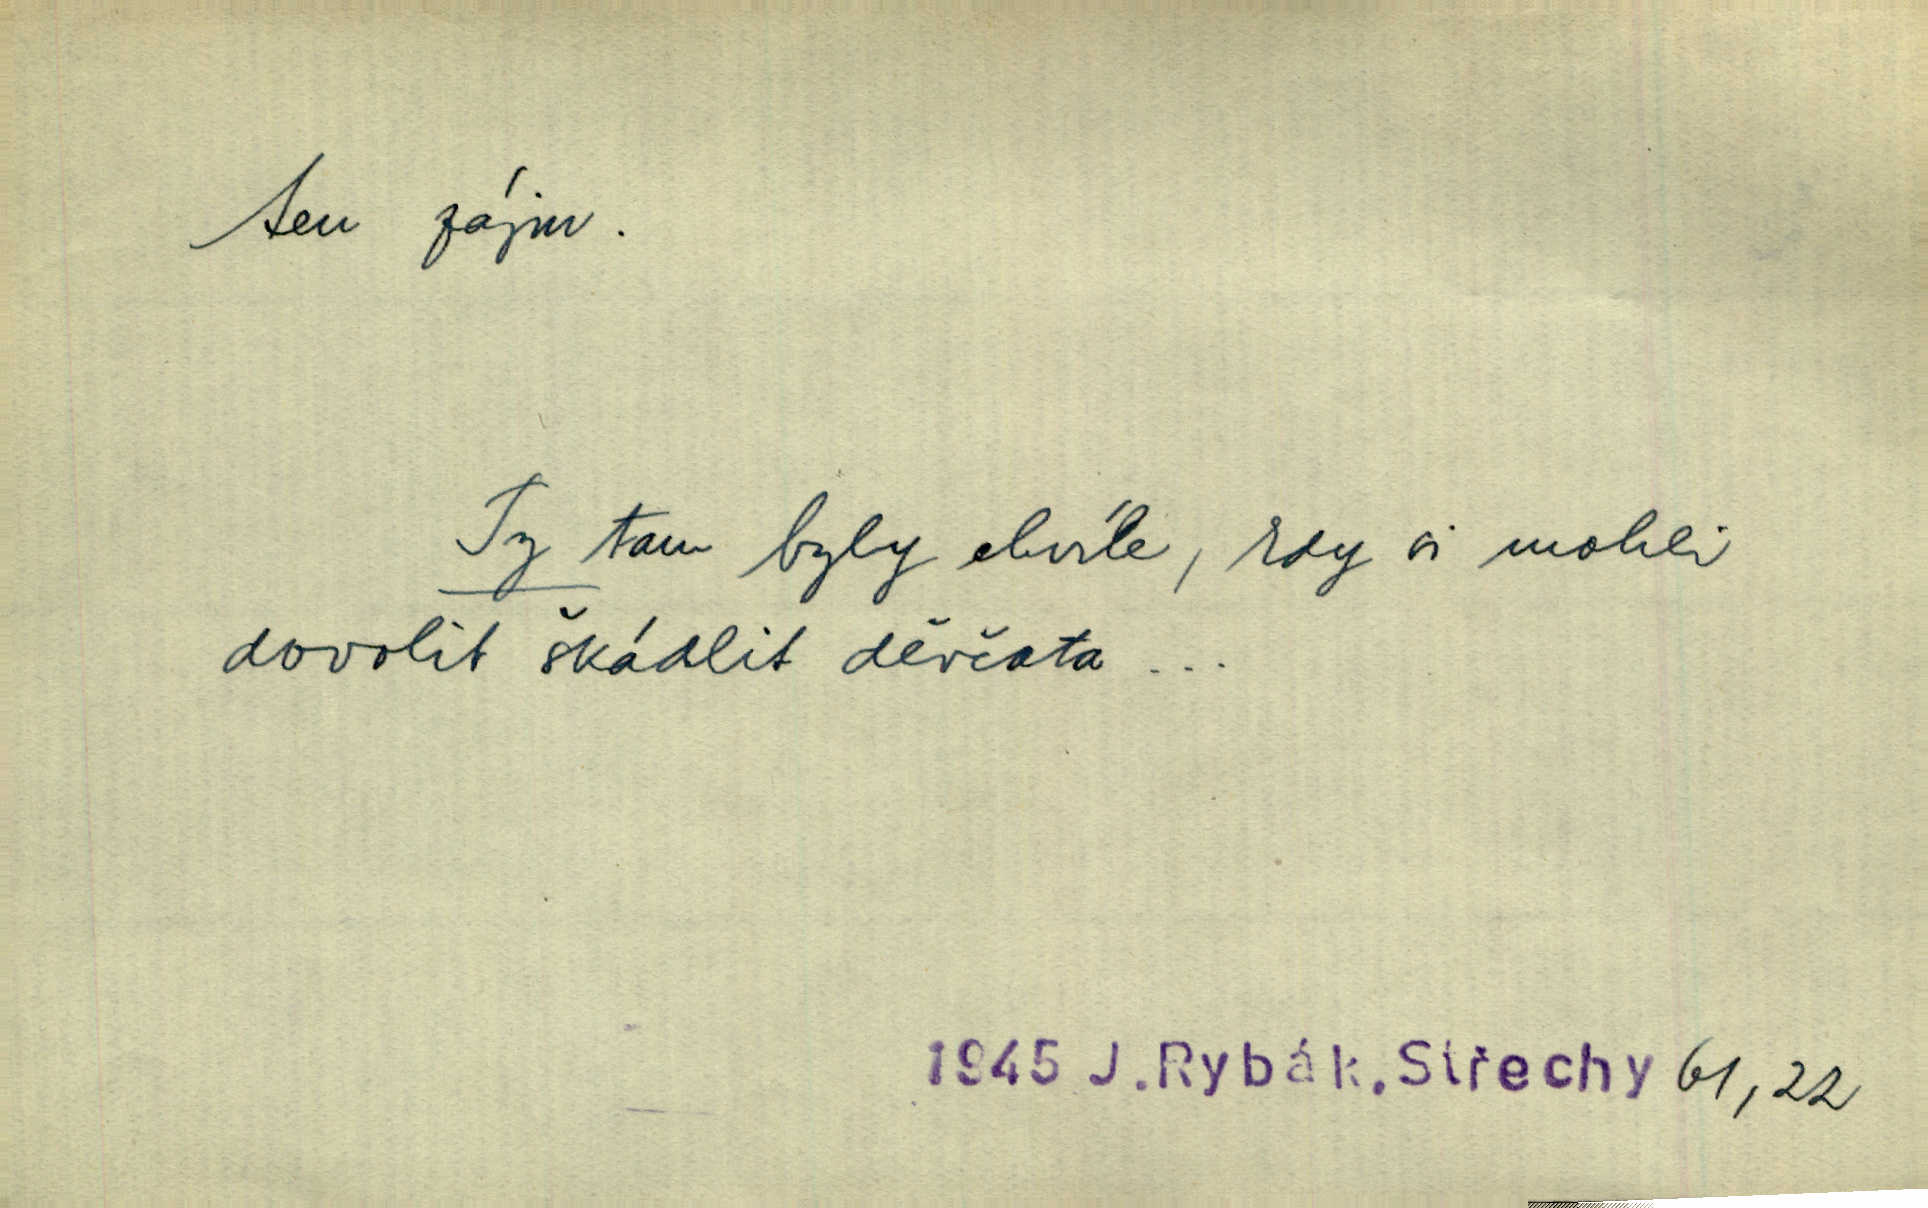 ten zájm.
Ty tam byly chvíle, kdy si mohli
dovolit škádlit děvčata ...
1945 J.Rybák,Střechy 61,22